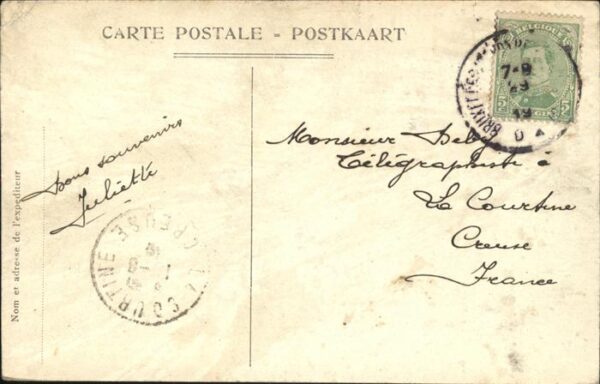 CARTE POSTALE - POSTKAART
BELGIQUE
5 5
BELGIE
7-8
29
19
Bons souvenirs
Juliette
Nom et adresse de l'expéditeur
LA COURTINE
CREUSE
Monsieur
Télégraphiste à
La Courtine
Creuse
France